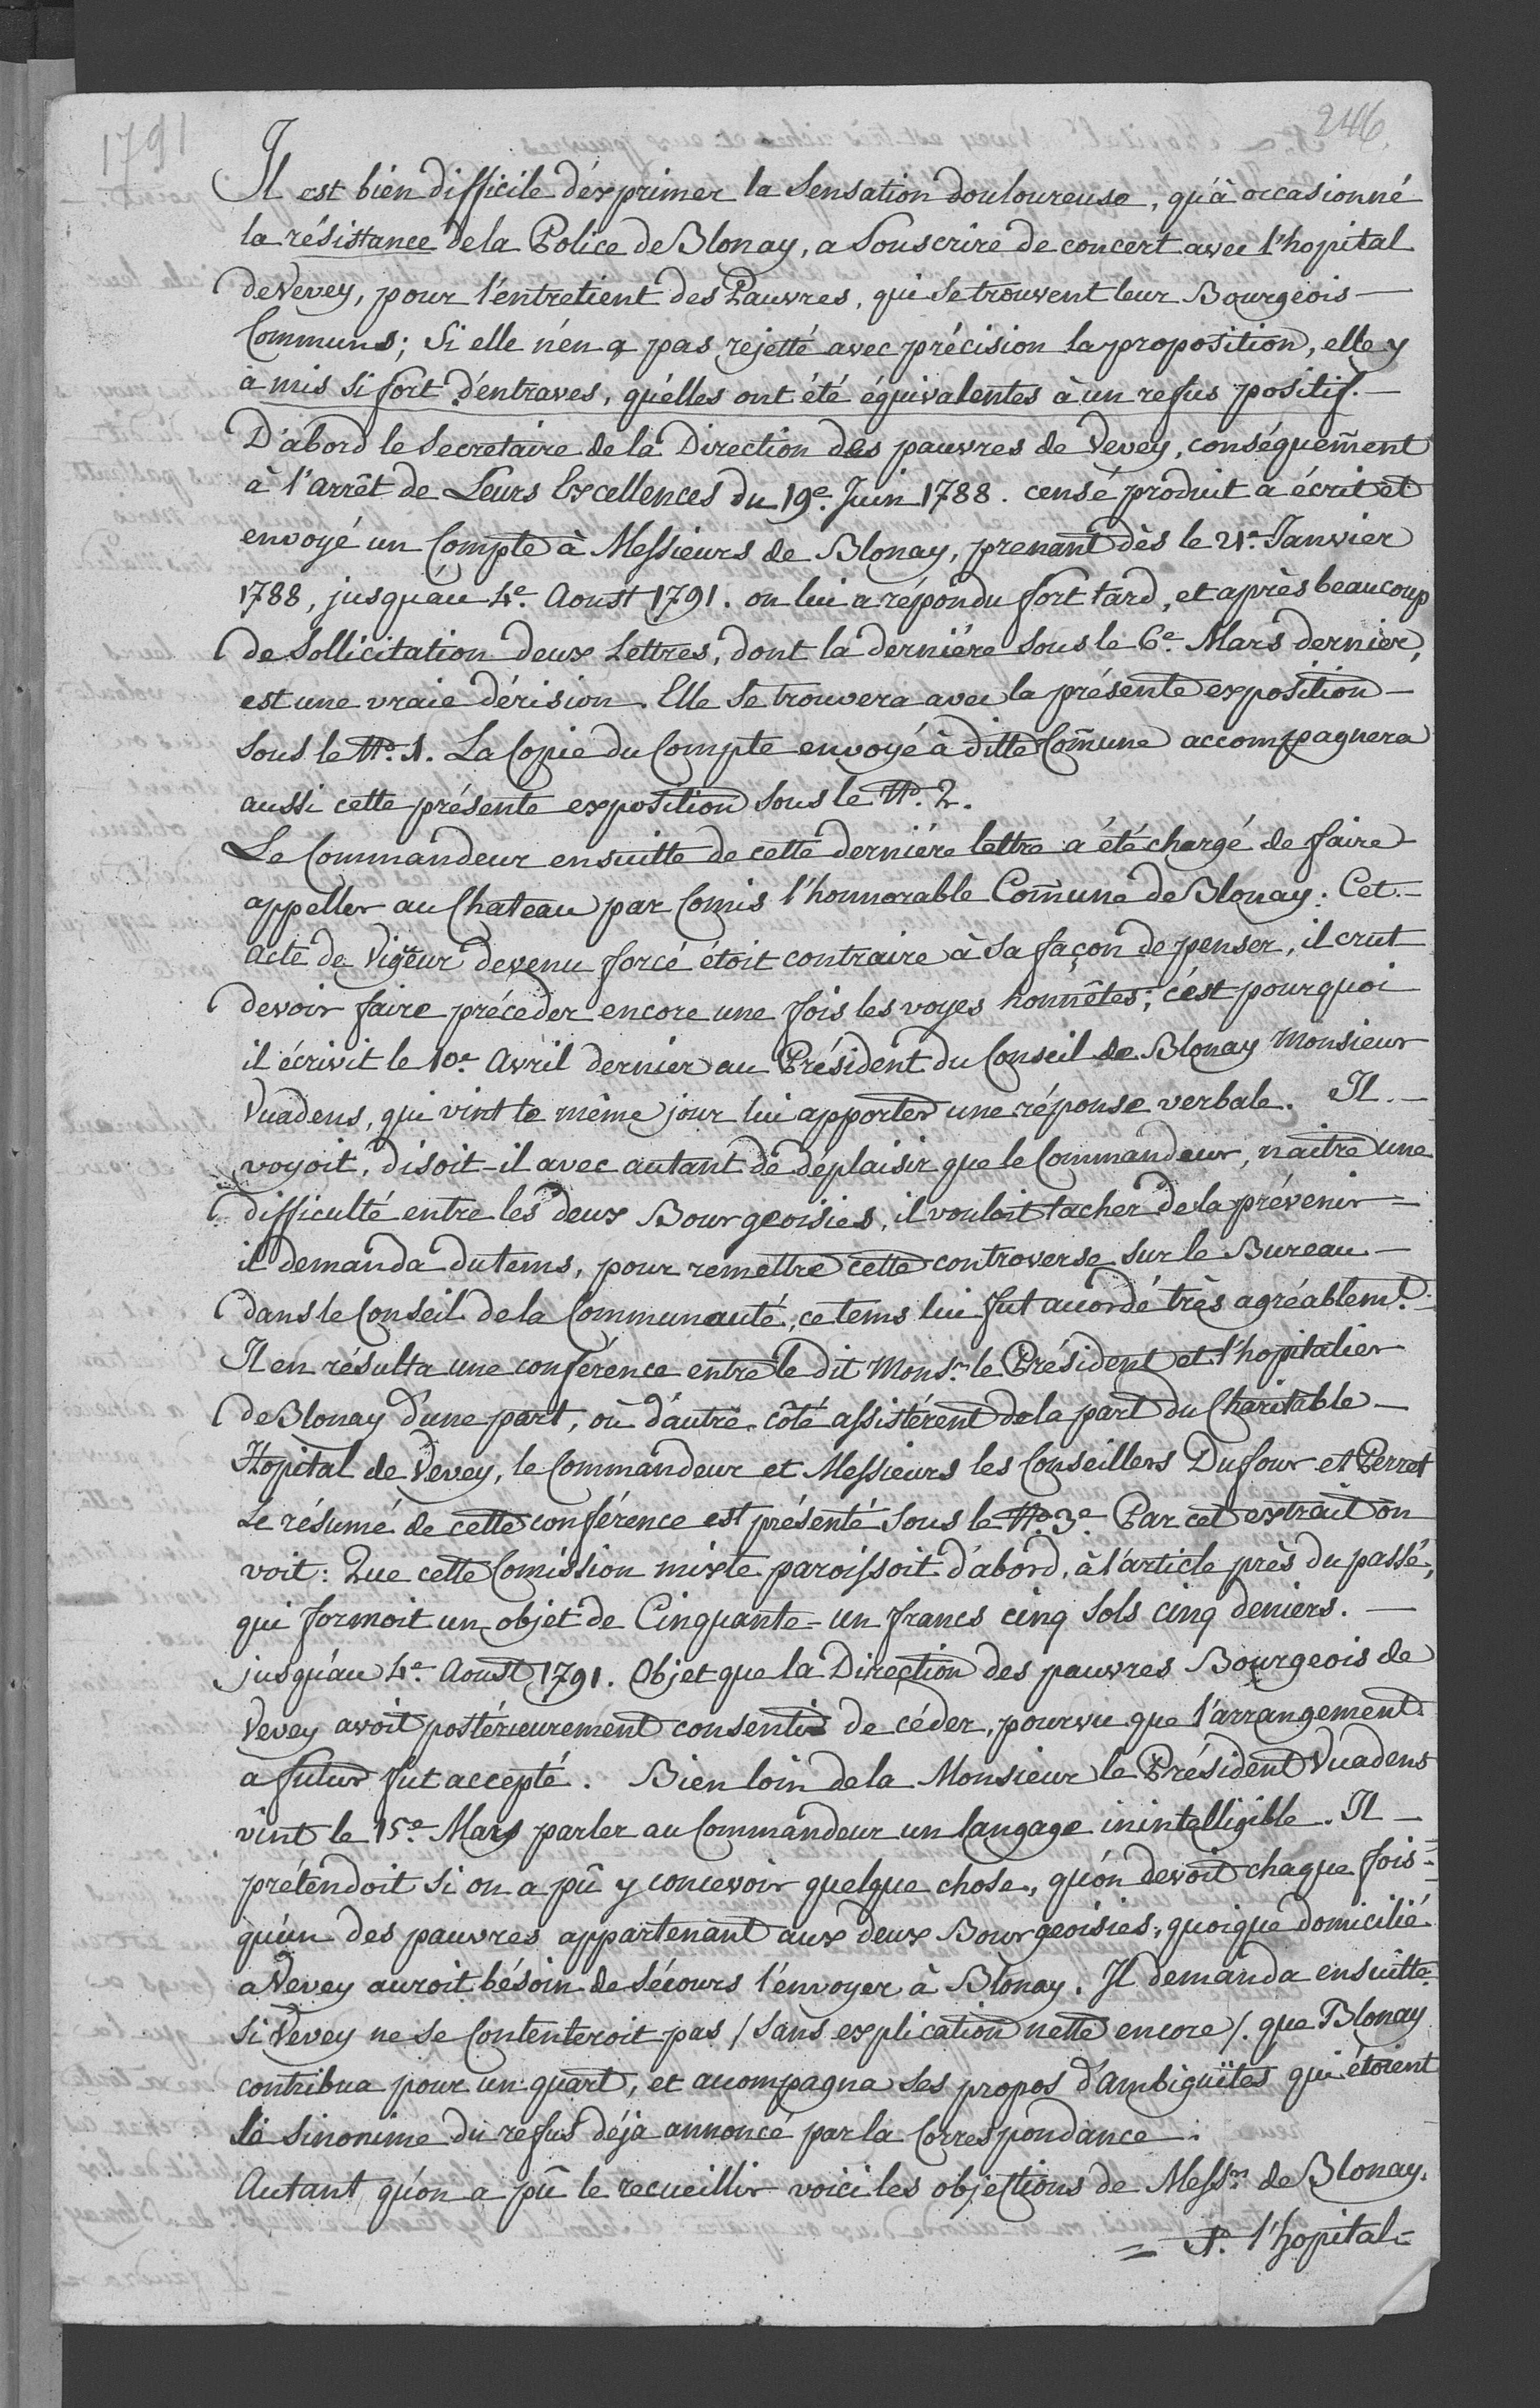 1791
246.
Il est bien difficile d'éxprimer la Sensation douloureuse, qu'à occasionné
la résistance de la Police de Blonay, a Souscrire de concert avec l'hopital
de Vevey, pour l'entretient des Pauvres, qui se trouvent leur Bourgeois —
Communs; Si elle n'én a pas rejetté avec précision la proposition, elle y
à mis si fort d'éntraves, qu'élles ont été équivalentes à un refus positif. —
D'abord le Secretaire de la Direction des pauvres de Vevey, conséquem̃ent
à l'arrêt de Leurs Excellences du 19e. Juin 1788. censé produit a écrit et
envoyé un Compte à Messieurs de Blonay, prenant dès le 21e. Janvier
1788, jusqu'au 4e. Aoust 1791. on lui a répondu fort tard, et après beaucoup
de Sollicitation deux Lettres, dont la derniére sous le 6e. Mars dernier,
est une vraie dérision. Elle Se trouvera avec la présente exposition —
sous le No. 1. La Copie du Compte envoyé à ditte Com̃une accompagnera
aussi cette présente exposition sous le No. 2.
Le Commandeur ensuitte de cette derniére lettre a été chargé de faire
appeller au Chateau par Comis l'honnorable Com̃une de Blonay: Cet. —
acte de Vigeur devenu forcé étoit contraire à Sa façon de penser, il crut
devoir faire préceder encore une fois les voyes honnêtes; c'ést pourquoi
il écrivit le 10e. Avril dernier au Président du Conseil de Blonay Monsieur
Vuadens, qui vint le même jour lui apporter une réponse verbale. Il. —
voyoit, disoit-il avec autant de déplaisir que le Commandeur, naitre une
difficulté entre les deux Bourgeoisies, il vouloit tacher de la prévenir =
il demanda du tems, pour remettre cette controverse sur le Bureau —
dans le Conseil de la Communauté, ce tems lui fut acordé très agréablemt.
Il en résulta une conférence entre le dit Monsr. le Président et l'hopitalier
de Blonay d'une part, où d'autre côté assistérent de la part du Charitable —
Hopital de Vevey, le Commandeur et Messieurs les Conseillers Dufour et Perret
Le résumé de cette conférence est présenté sous le No. 3e. Par cet extrait on
voit: Que cette Comission mixte paroissoit d'abord, à l'article près du passé,
qui formoit un objet de Cinquante-un francs cinq Sols cinq deniers. —
jusqu'au 4e. Aoust 1791. Objet que la Direction des pauvres Bourgeois de
Vevey avoit postérieurement consenti de céder, pourvu que l'arrangement
a futur fut accepté. Bien loin de la Monsieur le Président Vuadens
vint le 15e. Mars parler au Commandeur un langage inintelligible. Il —
prétendoit si on a pû y concevoir quelque chose, qu'ón devoit chaque fois =
qu'ún des pauvres appartenant aux deux Bourgeoisies, quoique domicilié
a Vevey auroit bésoin de sécours l'énvoyer à Blonay. Il demanda ensuitte
Si Vevey ne se Contenteroit pas /sans explication nette encore/. que Blonay
contribua pour un quart, et acompagna ses propos d'ambigüités qui étoient
le sinonime du refus déja annoncé par la Correspondance.
Autant qu'ón a pû le recueillir voici les objections de Messrs. de Blonay.
= 1o. l'hopital =